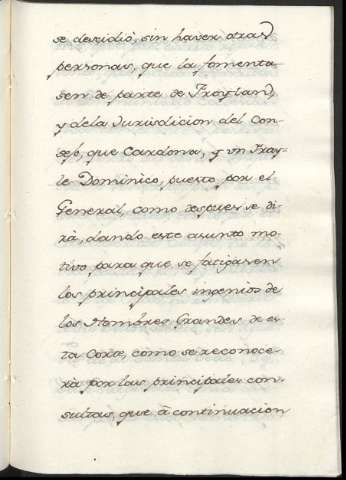 se desidiò, sin haver otras
personas, que la fomenta
sen de parte de Froyland,
y dela Jurisdicion del Con-
sejo, que Cardona, y un Fray-
le Dominico, puesto por el
General, como despues se di-
rà, dando este asunto mo-
tivo para que se fatigasen
los principales ingenios de
los Hombres Grandes de es-
ta Corte, como se reconoce-
rà por las principales con-
sultas, que à continuacion